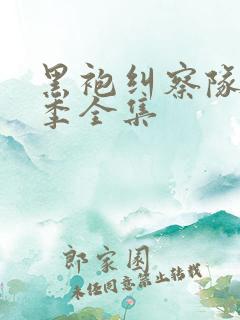 黑袍纠察队
季全集
郎家园
未经同意禁止转载